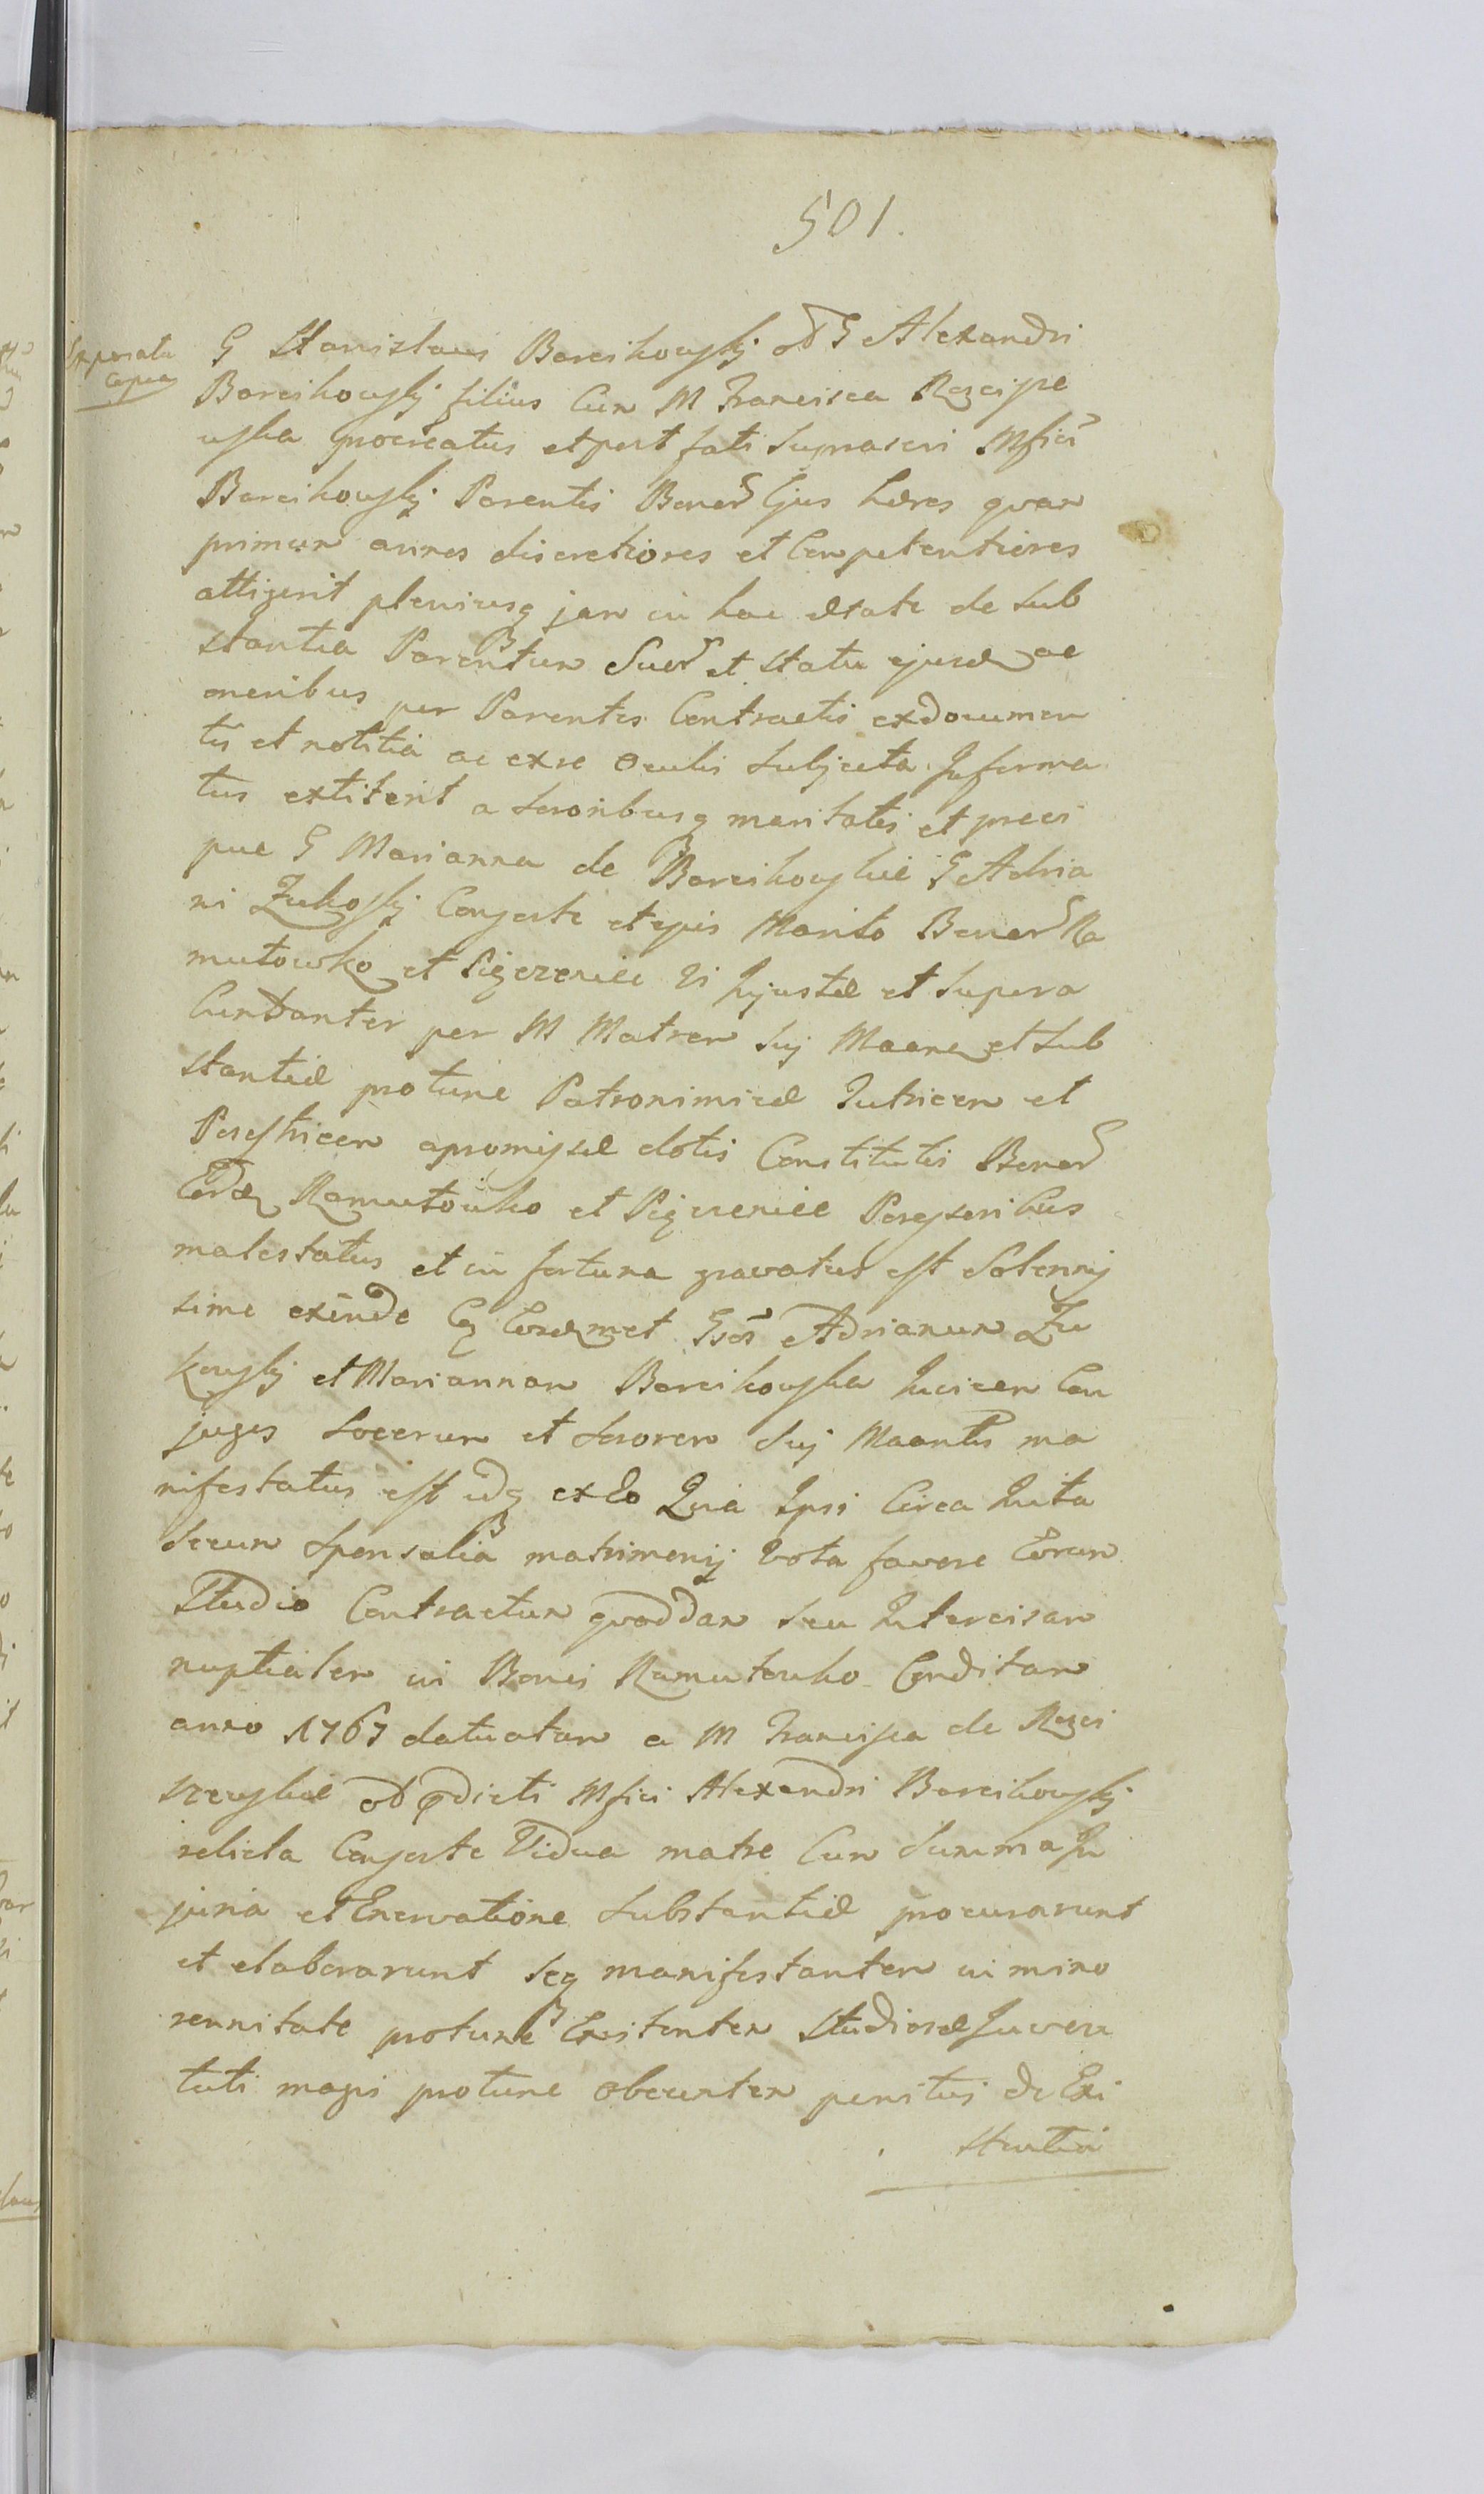 501.
G Stanislaus Borcikowskj od G Alexandri
Borcikowskj filius Cum M Francisca Rzcisze
wska procreatus et post fati supraseri Mfici
Borcikowskj Parentis Bonor Ejus hæres quam
primum annos discretiores et Competentiores
attigerit pleniusq jam in hac ætate de sub
stantia Parentum Suor et statu ejusd ac
oneribus per Parentes Contractis ex documen
tis et notitia ac ex re oculis subjecta Informa
tus extiterit a sororibusq maritatis et preci
pue G Marianna de Borcikowskie G Adria
ni Zukoskj Conjuste et ejus Marito Bonor Ra
mutowko et Pigczenice Vi Injustæ et supera
bundanter per M Matrem sui Maane et sub
stantiæ pro tunc Patronimicæ Tutricem et
Possestricem apromissæ dotis Constitutis Bonor
Eord Ramutowko et Pigczenice Possessoribus
malestatus et in fortuna gravatus est Solennis
sime exinde Cq Eosdemmet Gsos Adrianum Zu
kowskj et Mariannam Borcikowska Invicem Con
juges socerum et sororem sui Maantis ma
nifestatus est idq ex Eo Quia Ipsi Circa Inita
secum sponsalia matrimonij vota favore Eorum
Studio Contractum quoddam seu Intercisam
nuptialem in Bonis Ramutowko Conditam
anno 1767 datuatam a M Francisca de Rzci
szewskie od pdicti Mfici Alexandri Borcikowskj
relicta Conjuste Vidua matre Cum summa In
juria et Enervatione substantiæ procurarunt
et elaborarunt seq manifestantem in mino
rennitate protunc Existentem studiosæ Juven
tuti magis protunc obeuntem penitus de Exi
stentia